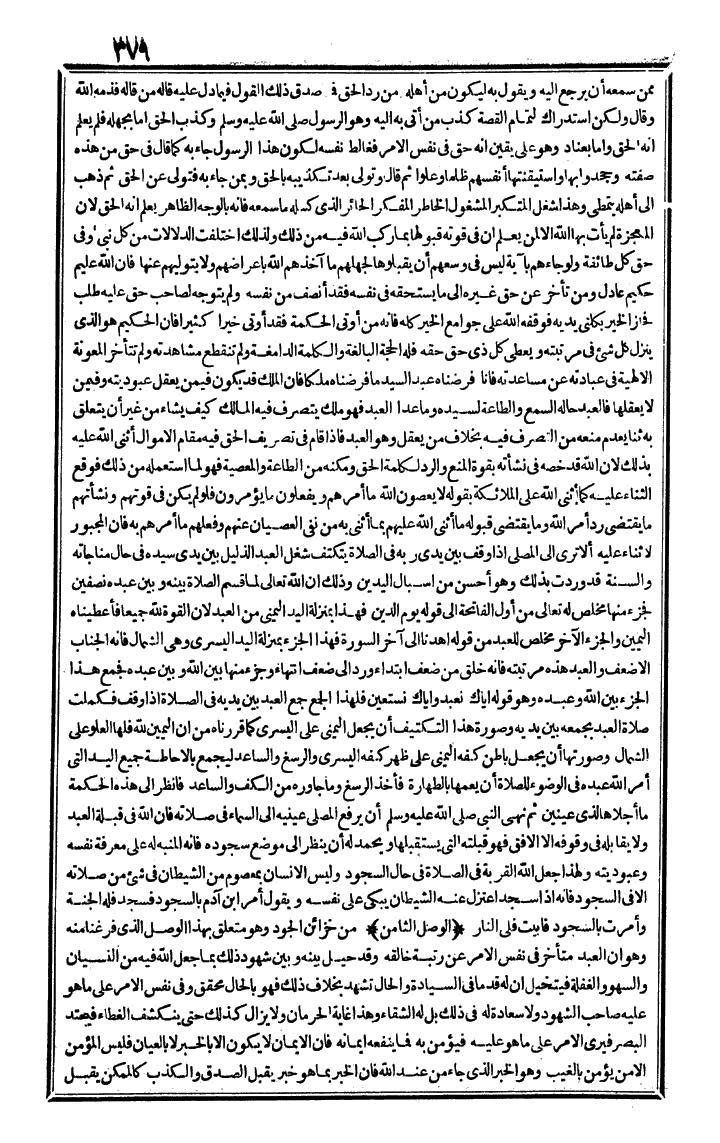 ٣٧٩
ممن سمعه أن يرجع اليه ويقول به ليكون من أهله من رد الحق في صدق ذلك القول فيما دل عليه قاله من قاله فذمه الله
وقال ولكن استدراك لتمام القصة كذب من أتى به اليه وهو الرسول صلى الله عليه وسلم وكذب الحق اما بجهله فلم يعلم
انه الحق واما بعناد وهو على يقين انه حق في نفس الامر فغالط نفسه لكون هذا الرسول جاء به كما قال في حق من هذه
صفته وجحدوا بها واستيقنتها أنفسهم ظلما وعلوا ثم قال وتولى بعد تكذيبه بالحق وبمن جاء به فتولى عن الحق ثم ذهب
الى أهله يتمطى وهذا شغل المتكبر المشغول الخاطر المفكر الحائر الذى كسله ما سمعه فانه بالوجه الظاهر يعلم انه الحق لان
المعجزة لم يأت بها الله الا لمن يعلم ان في قوته قبولها بما ركب الله فيه من ذلك ولذلك اختلفت الدلالات من كل نبي وفى
حق كل طائفة ولو جاءهم بآية ليس فى وسعهم أن يقبلوها لجهلهم ما آخذهم الله باعراضهم ولا بتوليهم عنها فان الله عليم
حكيم عادل ومن تأخر عن حق غيره الى ما يستحقه فى نفسه فقد أنصف من نفسه ولم يتوجه لصاحب حق عليه طلب
فحاز الخير بكلتى يديه فوقفه الله على جوامع الخير كله فانه من أوتى الحكمة فقد أوتى خيرا كثيرا فان الحكيم هو الذى
ينزل كل شئ فى مرتبته ويعطى كل ذى حق حقه فله الحجة البالغة والكلمة الدامغة ولم تنقطع مشاهدته ولم تتأخر المعونة
الالهية فى عبادته عن مساعدته فانا فرضناه عبد السيد ما فرضناه ملكا فان الملك قد يكون فيمن يعقل عبوديته وفيمن
لا يعقلها فالعبد حاله السمع والطاعة لسيده وما عدا العبد فهو ملك يتصرف فيه المالك كيف يشاء من غير أن يتعلق
به ثنا بعدم منعه من التصرف فيه بخلاف من يعقل وهو العبد فاذا قام فى تصريف الحق فيه مقام الاموال أثنى الله عليه
بذلك لان الله قد خصه فى نشأته بقوة المنع والرد لكلمة الحق ومكنه من الطاعة والمعصية فهو لما استعمله من ذلك فوقع
الثناء عليه كما أثنى الله على الملائكة بقوله لا يعصون الله ما أمرهم ويفعلون ما يؤمرون فلو لم يكن فى قوتهم ونشأتهم
ما يقتضى رد أمر الله وما يقتضى قبوله ما أثنى الله عليهم بما أثنى به من نفى العصيان عنهم وفعلهم ما أمرهم به فان المجبور
لا ثناء عليه ألا ترى الى المصلى اذا وقف بين يدى ربه فى الصلاة يتكتف شغل العبد الذليل بين يدى سيده فى حال مناجاته
والسنة قد وردت بذلك وهو أحسن من اسبال اليدين وذلك ان الله تعالى لما قسم الصلاة بينه وبين عبده نصفين
فجزء منها مخلص له تعالى من أول الفاتحة الى قوله يوم الدين فهذا بمنزلة اليد اليمنى من العبد لان القوة لله جميعا فأعطيناه
اليمين والجزء الآخر مخلص للعبد من قوله اهدنا الى آخر السورة فهذا الجزء بمنزلة اليد اليسرى وهى الشمال فانه الجناب
الاضعف والعبد هذه مرتبته فانه خلق من ضعف ابتداء ورد الى ضعف انتهاء وجزء منها بين الله وبين عبده فجمع هذا
الجزء بين الله وعبده وهو قوله اياك نعبد واياك نستعين فلهذا الجمع جمع العبد بين يديه فى الصلاة اذا وقف فكملت
صلاة العبد بجمعه بين يديه وصورة هذا التكتيف أن يجعل اليمنى على اليسرى كما قررناه من ان اليمين لله فلها العلو على
الشمال وصورتها أن يجعل باطن كفه اليمنى على ظهر كفه اليسرى والرسغ والساعد ليجمع بالاحاطة جميع اليد التى
أمر الله عبده فى الوضوء للصلاة أن يعمها بالطهارة فأخذ الرسغ وما جاوره من الكف والساعد فانظر الى هذه الحكمة
ما أجلاها لذى عينين ثم نهى النبي صلى الله عليه وسلم أن يرفع المصلى عينيه الى السماء فى صلاته فان الله فى قبلة العبد
ولا يقابله فى وقوفه الا الافق فهو قبلته التى يستقبلها ويحمد له أن ينظر الى موضع سجوده فانه المنبه له على معرفة نفسه
وعبوديته ولهذا جعل الله القربة فى الصلاة فى حال السجود وليس الانسان بمعصوم من الشيطان فى شئ من صلاته
الا فى السجود فانه اذا سجد اعتزل عنه الشيطان يبكى على نفسه ويقول أمر ابن آدم بالسجود فسجد فله الجنة
وأمرت بالسجود فابيت فلى النار ﴿الوصل الثامن﴾ من خزائن الجود وهو متعلق بهذا الوصل الذى فرغنا منه
وهو ان العبد متأخر فى نفس الامر عن رتبة خالقه وقد حيل بينه وبين شهود ذلك بما جعل الله فيه من النسيان
والسهو والغفلة فيتخيل ان له قدما فى السيادة والحال تشهد بخلاف ذلك فهو بالحال محقق وفى نفس الامر على ما هو
عليه صاحب الشهود ولا سعادة له فى ذلك بل له الشقاء وهذا غاية الحرمان ولا يزال كذلك حتى ينكشف الغطاء فيحتد
البصر فيرى الامر على ما هو عليه فيؤمن به فما ينفعه ايمانه فان الايمان لا يكون الا بالخبر لا بالعيان فليس المؤمن
الا من يؤمن بالغيب وهو الخبر الذى جاء من عند الله فان الخبر بما هو خبر يقبل الصدق والكذب كالممكن يقبل